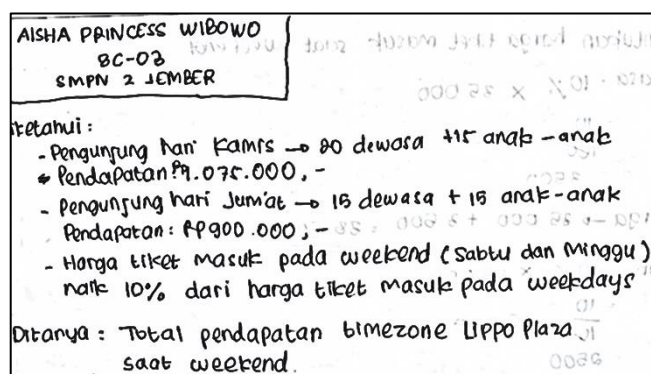 AISHA PRINCESS WIBOWO
8C-03
SMPN 2 JEMBER
iketahui :
- Pengunjung hari Kamis → 20 dewasa +15 anak-anak
• Pendapatan Rp1.075.000,-
- Pengunjung hari Jum'at → 15 dewasa + 15 anak-anak
Pendapatan : RP900.000,-
- Harga tiket masuk pada weekend (Sabtu dan Minggu)
naik 10% dari harga tiket masuk pada weekdays
Ditanya : Total pendapatan timezone Lippo Plaza
saat weekend.